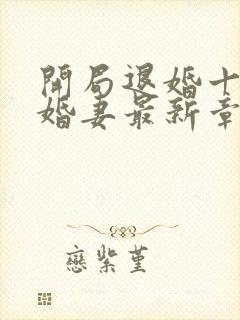 開局退婚十
婚妻最新章
戀紫堇